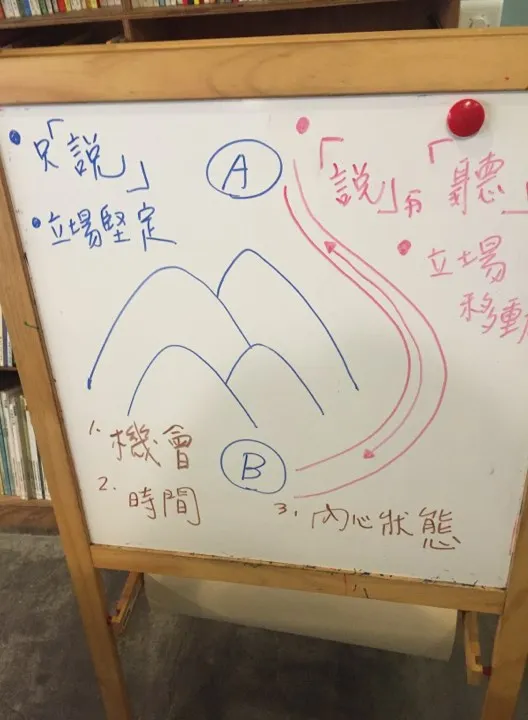 • 只「説」
• 立場堅定
A
• 「説」與「聽」
• 立場
移動
B
1. 機會
2. 時間
3. 內心狀態